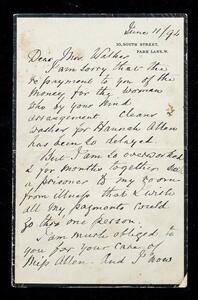 June 11/96
10, SOUTH STREET,
PARK LANE. W.
Dear Mrs. Walker
I am sorry that the
re payment to you of the
money for the woman
who by your kind
arrangement cleans &
washes for Hannah Allen
has been so delayed
But I am so overworked
& for months together
a prisoner to my room
from illness that I wish
all my payments could
go thro' one person.
I am much obliged to
you for your care of
Miss Allen. And I now